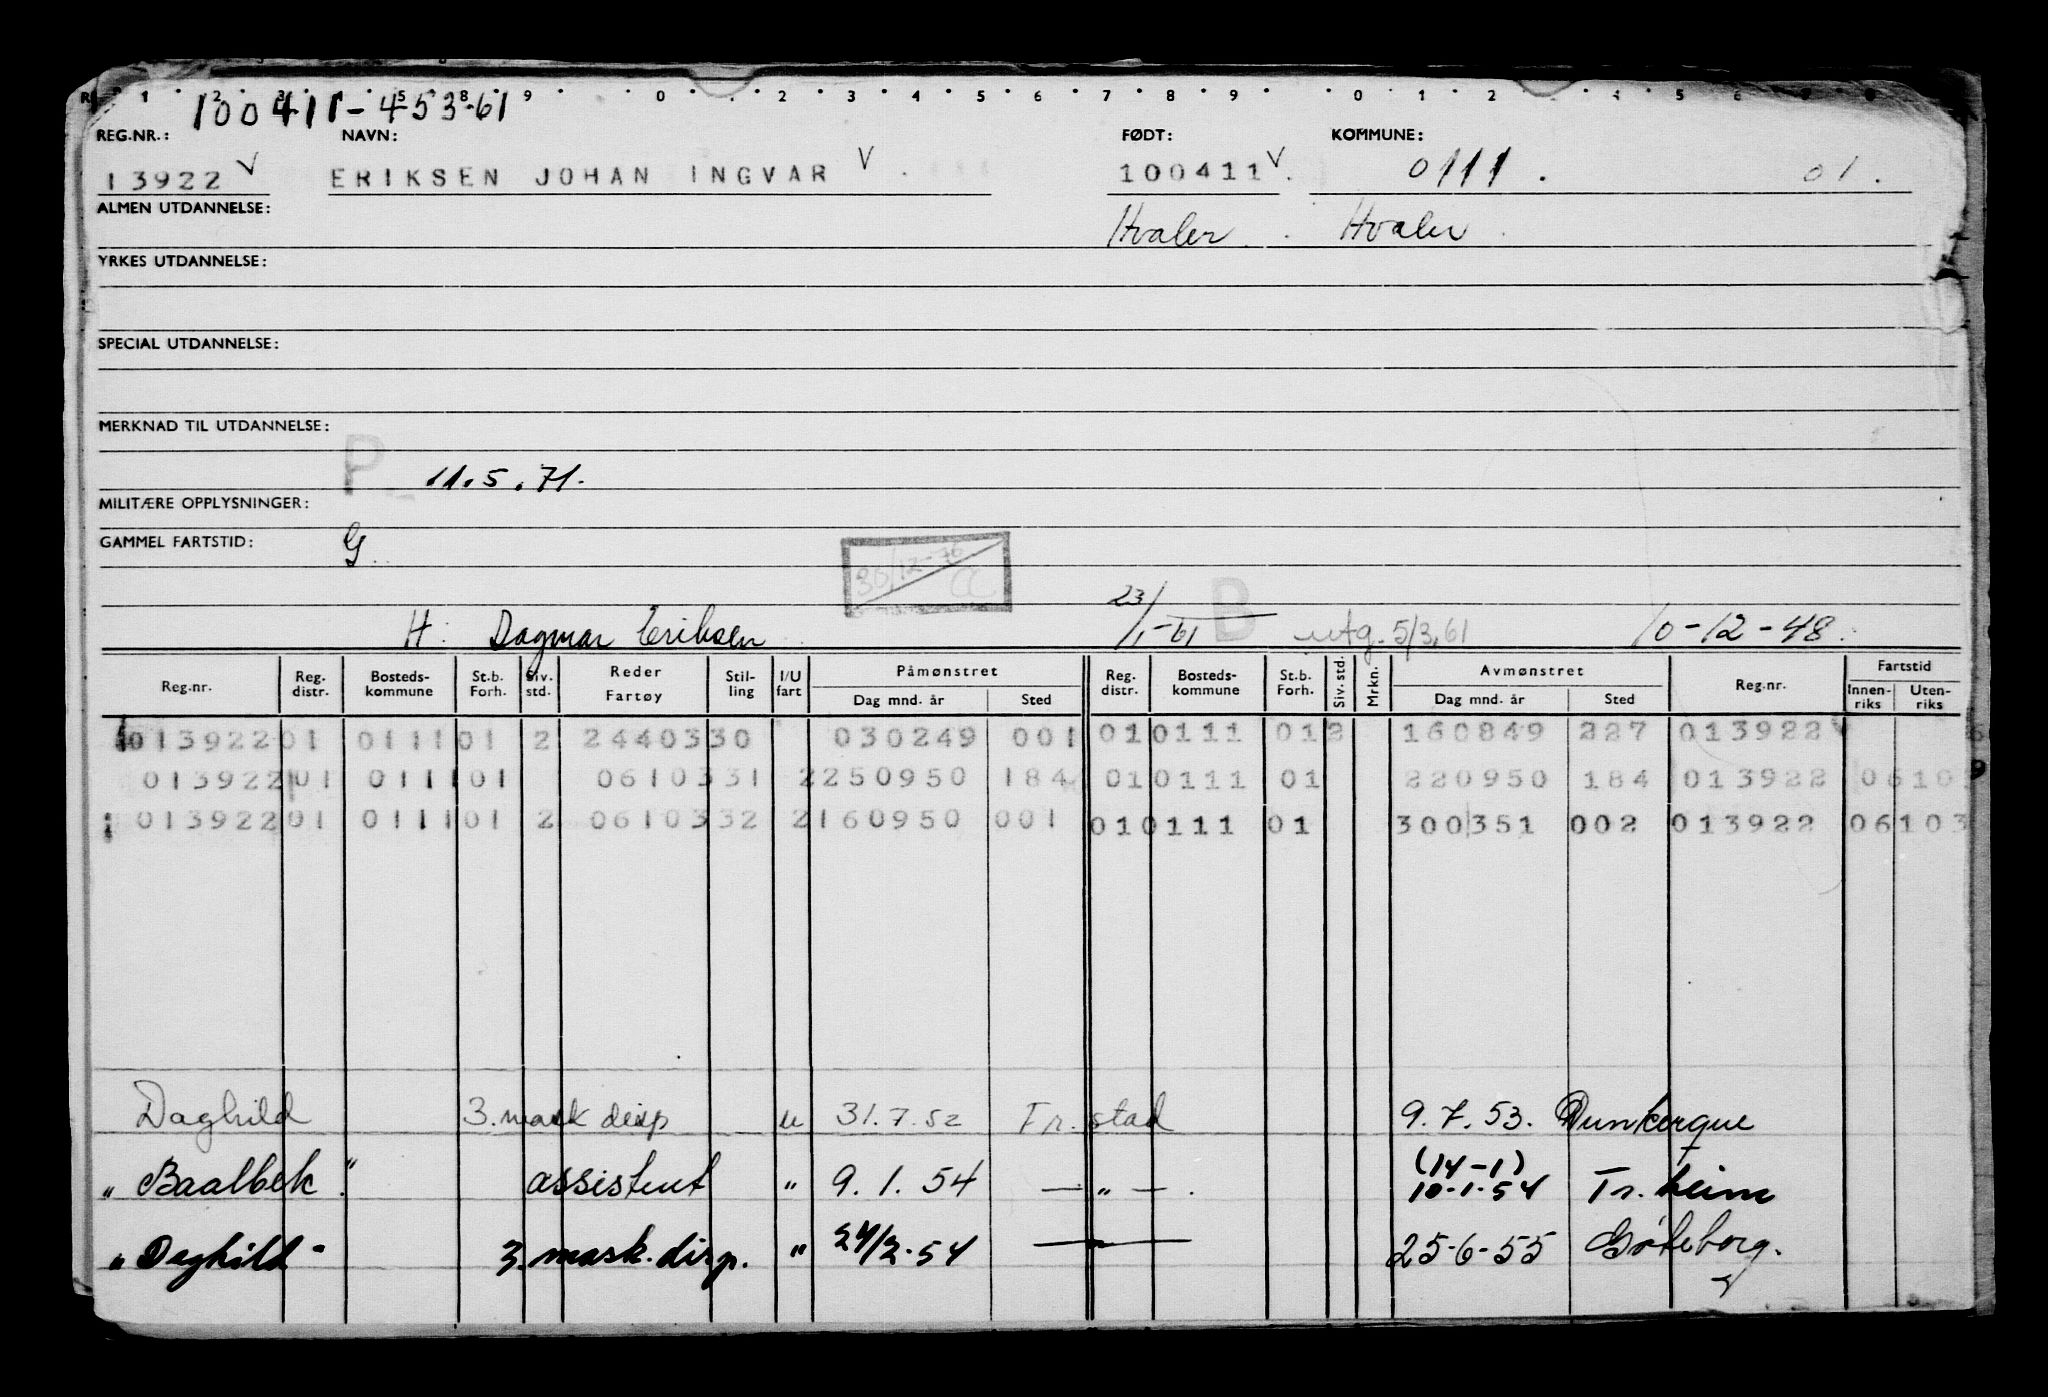 100411-453-61
REG.NR.: NAVN: FØDT: KOMMUNE:
13922 V ERIKSEN JOHAN INGVAR V 100411 V 0111. 01.
ALMEN UTDANNELSE: Hvaler Hvaler
YRKES UTDANNELSE:
SPECIAL UTDANNELSE:
MERKNAD TIL UTDANNELSE:
P 11.5.71.
MILITÆRE OPPLYSNINGER:
GAMMEL FARTSTID: G
30/12-76
CC
H. Dagmar Eriksen 23/1-61 B utg. 5/3.61 10-12-48.
Reg.nr. Reg. distr. Bosteds-kommune St.b. Forh. Siv. std. Reder Fartøy Stil-ling I/U fart Påmønstret Dag mnd. år Sted Reg. distr. Bosteds-kommune St.b. Forh. Siv. std. Mrkn. Avmønstret Dag mnd. år Sted Reg.nr. Fartstid Innen-riks Uten-riks
013922 01 0111 01 2 24403 30 030249 001 01 0111 01 2 160849 227 013922
013922 01 0111 01 06103 31 2 250950 184 01 0111 01 220950 184 013922 0610
013922 01 0111 01 2 06103 32 2 160950 001 01 0111 01 300351 002 013922 06103
Daghild 3. mask disp u 31.7.52 Fr.stad 9.7.53. Dunkerque
"Baalbek." assistent " 9.1.54 — " — . (14-1) 10-1-54 Tr.heim
"Daghild" 3. mask. disp. " 24/2-54 — " — 25-6-55 Göteborg.